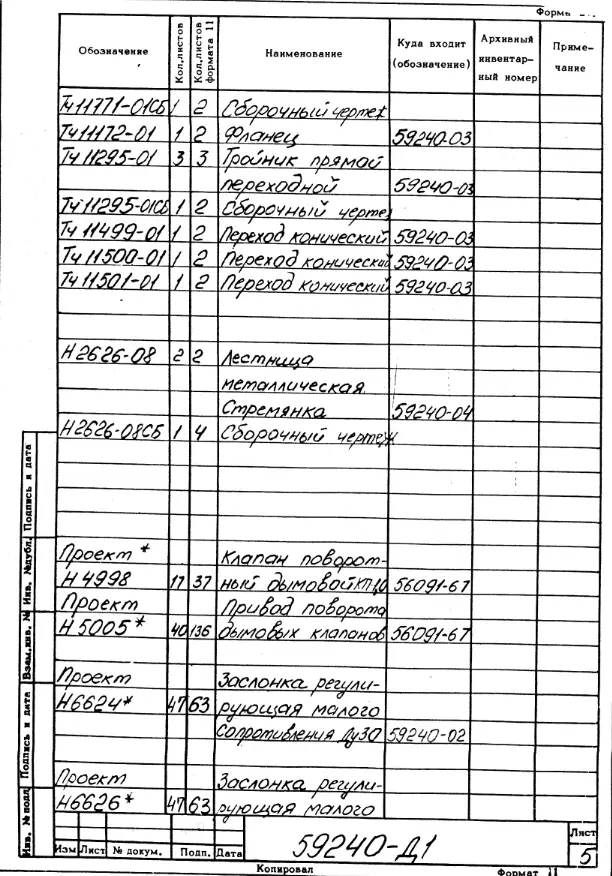 Форма
Обозначение Кол.листов Кол.листов формата 11 Наименование Куда входит (обозначение) Архивный инвентар-ный номер Приме-чание
Тч11771-01СБ 1 2 Сборочный чертеж
Тч11172-01 1 2 Фланец 59240-03
Тч11295-01 3 3 Тройник прямой
переходной 59240-03
Тч11295-01СБ 1 2 Сборочный чертеж
Тч11499-01 1 2 Переход конический 59240-03
Тч11500-01 1 2 Переход конический 59240-03
Тч11501-01 1 2 Переход конический 59240-03
Н2626-08 2 2 Лестница
металлическая
Стремянка 59240-04
Н2626-08СБ 1 4 Сборочный чертеж
Проект * Клапан поворот-
Н4998 17 37 ный дымовой 56091-67
Проект Привод поворота
Н5005* 40 136 дымовых клапанов 56091-67
Проект Заслонка регули-
Н6624* 47 63 рующая малого
сопротивления 59240-02
Проект Заслонка регули-
Н6626* 47 63 рующая малого
Инв. № подл Подпись и дата Взам.инв. № Инв. № дубл. Подпись и дата
Изм Лист № докум. Подп. Дата
59240-Д1
Лист
5
Копировал Формат 11